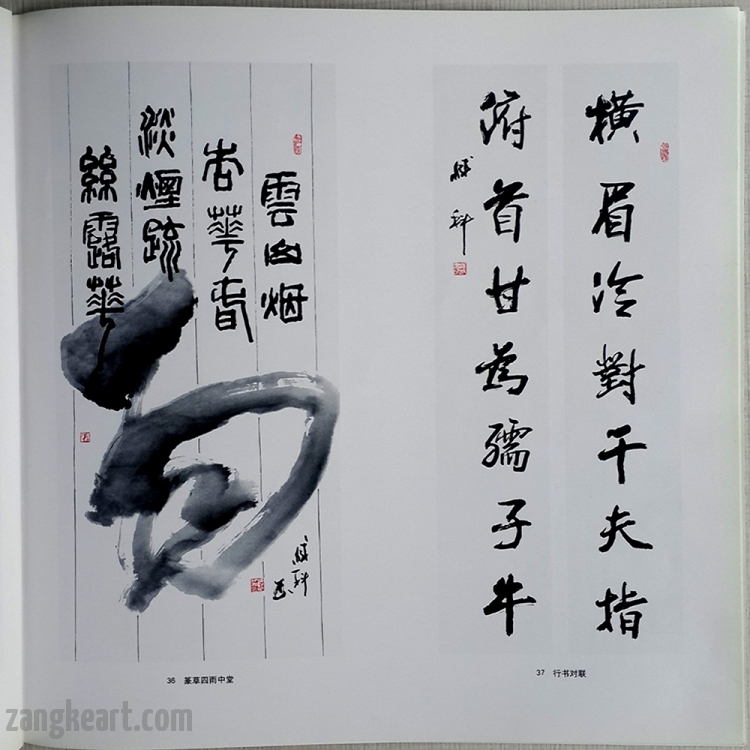 雲山烟
杏華春
淡煙疏
絲露華
雨
36 篆草四雨中堂
橫眉冷對千夫指
俯首甘為孺子牛
37 行书对联
zangkeart.com